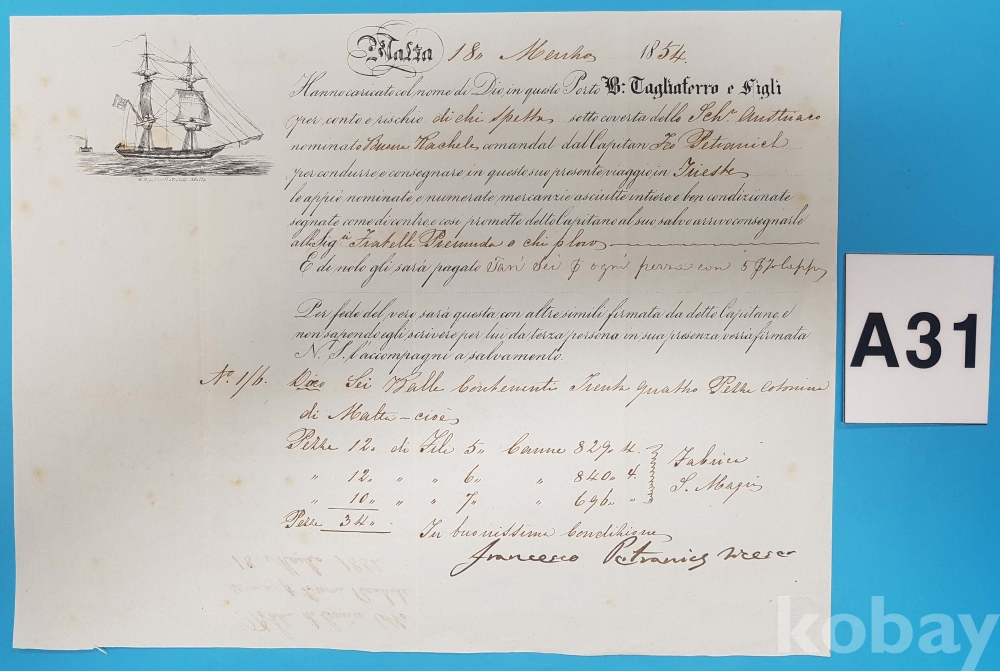 Malta 18,, Marzo 1854.
Hanno caricato col nome di Dio in questo Porto B: Tagliaferro e Figli
per conto e rischio di chi spetta sotto coverta dello Sch.r Austriaco
nominato Buona Rachele comandat dal Capitan Fco Petranich
per condurre e consegnare in questo suo presente viaggio in Trieste
le appiè nominate e numerate mercanzie asciutte intiere e ben condizionate
segnate come di contro e così promette detto Capitano al suo salvo arrivo consegnarle
alli Sig.ri Fratelli Premuda o chi p loro
E di nolo gli sarà pagato Tarì Sei ogni pezza con 5 Cappa
Per fede del vero sarà questa con altre simili firmata da detto Capitano e
non sapendo egli scrivere per lui da terza persona in sua presenza verrà firmata
N. S. l'accompagni a salvamento.
No. 1/6. Dico Sei Balle Contenenti Trenta quattro Pezze Cotonina
di Malta - cioè
Pezze 12,, di Fili 5,, Canne 829,, 4.
,, 12,, ,, ,, 6,, ,, 840,, 4. Fabrica
,, 10,, ,, ,, 7,, ,, 696,, ,, S. Magri
Pezze 34,, In buonissima Condizione
Francesco Petranich
A31
kobay